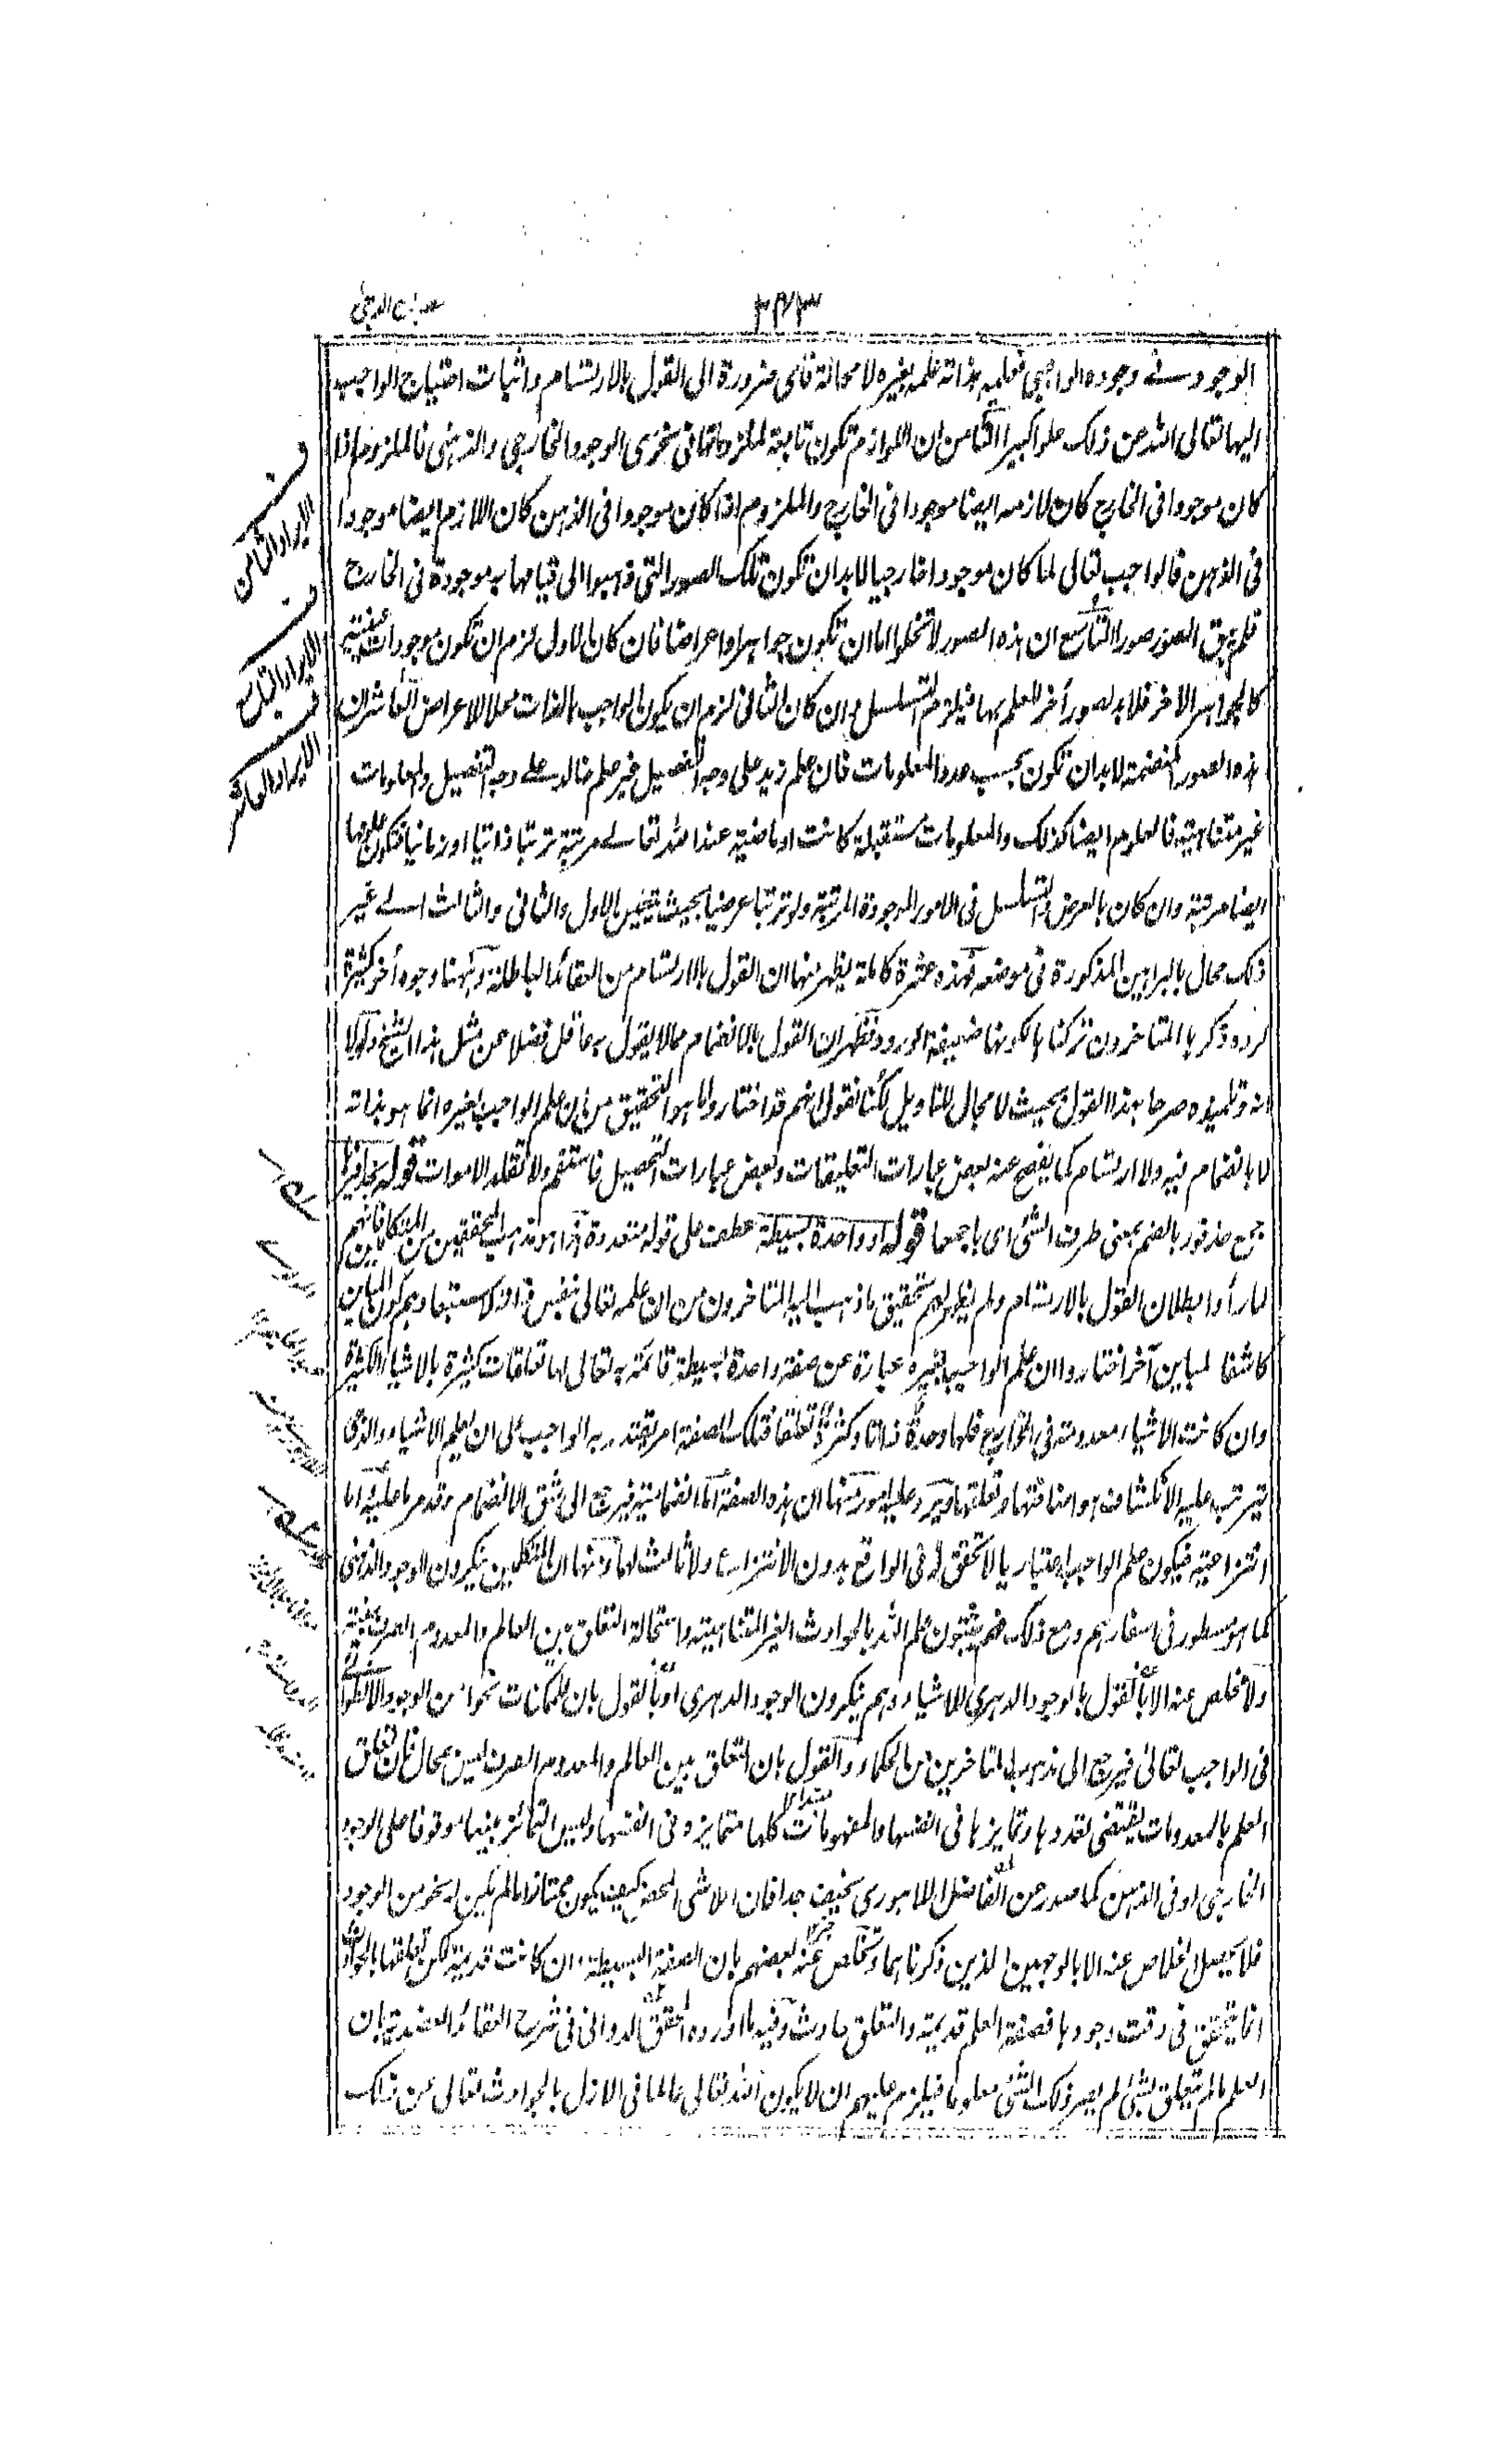 مصباح الدجى
٢٤٣
الوجود في وجوده الواجبي فعلمه بذاته علمه بغيره لا محالة فاى ضرورة الى القول بالارتسام واثبات احتياج الواجب
اليها تعالى الله عن ذلك علوا كبيرا الثامن ان اللوازم تكون تابعة لملزوماتها في نحوى الوجود الخارجي والذهني فالملزوم اذا
كان موجودا في الخارج كان لازمه ايضا موجودا في الخارج والملزوم اذا كان موجودا في الذهن كان اللازم ايضا موجودا
في الذهن فالواجب تعالى لما كان موجودا خارجيا لا بد ان تكون تلك الصور التي ذهبوا الى قيامها به موجودة في الخارج
فلم يبق الصور صورا التاسع ان هذه الصور لا تخلوا اما ان تكون جواهر او اعراضا فان كان الاول لزم ان تكون موجودات عينية
كالجواهر الاخر فلا بد لصور أخر للعلم بها فيلزم التسلسل وان كان الثاني لزم ان يكون الواجب بالذات محلا للاعراض العاشر ان
هذه الصور المنضمة لا بد ان تكون بحسب عدد المعلومات فان علم زيد على وجه التفصيل غير علم خالد على وجه التفصيل والمعلومات
غير متناهية فالعلوم ايضا كذلك والمعلومات مستقبلة كانت او ماضية عند الله تعالى مرتبة ترتبا ذاتيا او زمانيا فتكون علومها
ايضا مرتبة وان كان بالعرض والتسلسل في الامور الموجودة المرتبة ولو ترتبا عرضيا بحيث يتعين الاول والثاني والثالث الى غير
ذلك محال بالبراهين المذكورة في موضعه فهذه عشرة كاملة يظهر منها ان القول بالارتسام من العقائد الباطلة وههنا وجوه أخر كثيرة
لرده ذكرها المتاخرون تركناها لكونها ضعيفة الورود فظهر ان القول بالانضمام مما لا يقول به عاقل فضلا عن مثل هذا الشيخ ولولا
انه وتلميذه صرحا بهذا القول بحيث لا مجال للتاويل لكنا نقول انهم قد اختاروا ما هو التحقيق من ان علم الواجب بغيره انما هو بذاته
لا بانضمام فيه ولا ارتسام كما يفصح عنه بعض عبارات التعليقات وبعض عبارات التحصيل فاستقم ولا تقلد الاموات قوله بحذافيرها
جمع حذفور بالضم بمعنى طرف الشئ اى باجمعها قوله او واحدة بسيطة عطف على قوله متعددة هذا هو مذهب المحققين من المتكلمين فانهم
لما رأوا بطلان القول بالارتسام ولم يظهر لهم تحقيق ما ذهب اليه المتاخرون من ان علمه تعالى بنفس ذاته لاستبعادهم كون المباين
كاشفا لمباين آخر اختاروا ان علم الواجب بغيره عبارة عن صفة واحدة بسيطة قائمة به تعالى لها تعلقات كثيرة بالاشياء الكثيرة
وان كانت الاشياء معدومة في الخارج فلها وحدة ذاتا وكثرة تعلقا فتلك الصفة امر يقتدر به الواجب على ان يعلم الاشياء والذى
يترتب عليه الانكشاف هو اضافتها وتعلقها ويرد عليه امور منها ان هذه الصفة اما انضمامية فيرجع الى شق الانضمام وقد مر ما عليه اما
انتزاعية فيكون علم الواجب اعتباريا لا تحقق له في الواقع بدون الانتزاع ولا ثالث لهما ومنها ان المتكلمين ينكرون الوجود الذهني
كما هو مسطور في اسفارهم ومع ذلك فهم يثبتون علم الله بالحوادث الغير المتناهية واستحالة التعلق بين العالم والمعدوم الصرف بينة
ولا مخلص عنه الا بالقول بالوجود الدهري للاشياء وهم ينكرون الوجود الدهري او بالقول بان للممكنات نحوا من الوجود الانطوائي
في الواجب تعالى فيرجع الى مذهب المتاخرين من الحكماء والقول بان التعلق بين العالم والمعدوم الصرف ليس بمحال فان تعلق
العلم بالمعدومات يقتضى تعددها وتمايزها في انفسها والمفهومات كلها متمايزة في انفسها وليس التمائز بينها موقوفا على الوجود
الخارجي او في الذهن كما صدر عن الفاضل اللاهوري سخيف جدا فان اللاشي المحض كيف يكون ممتازا ما لم يكن له نحو من الوجود
فلا يحصل الخلاص عنه الا بالوجهين الذين ذكرناهما وتخلص عنه بعضهم بان الصفة البسيطة وان كانت قديمة لكن تعلقها بالحوادث
انما يتحقق في وقت وجودها فصفة العلم قديمة والتعلق حادث وفيه ما اورده المحقق الدواني في شرح العقائد العضدية بان
العلم ما لم يتعلق بشئ لم يصر ذلك الشئ معلوما فيلزم عليهم ان لا يكون الله تعالى عالما في الازل بالحوادث تعالى عن ذلك
الايراد الثامن
الايراد التاسع
الايراد العاشر